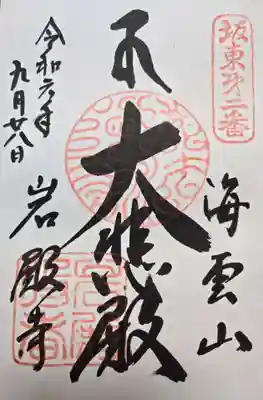 坂東第二番
海雲山
奉拝
大悲殿
岩殿寺
令和六年
九月廿八日